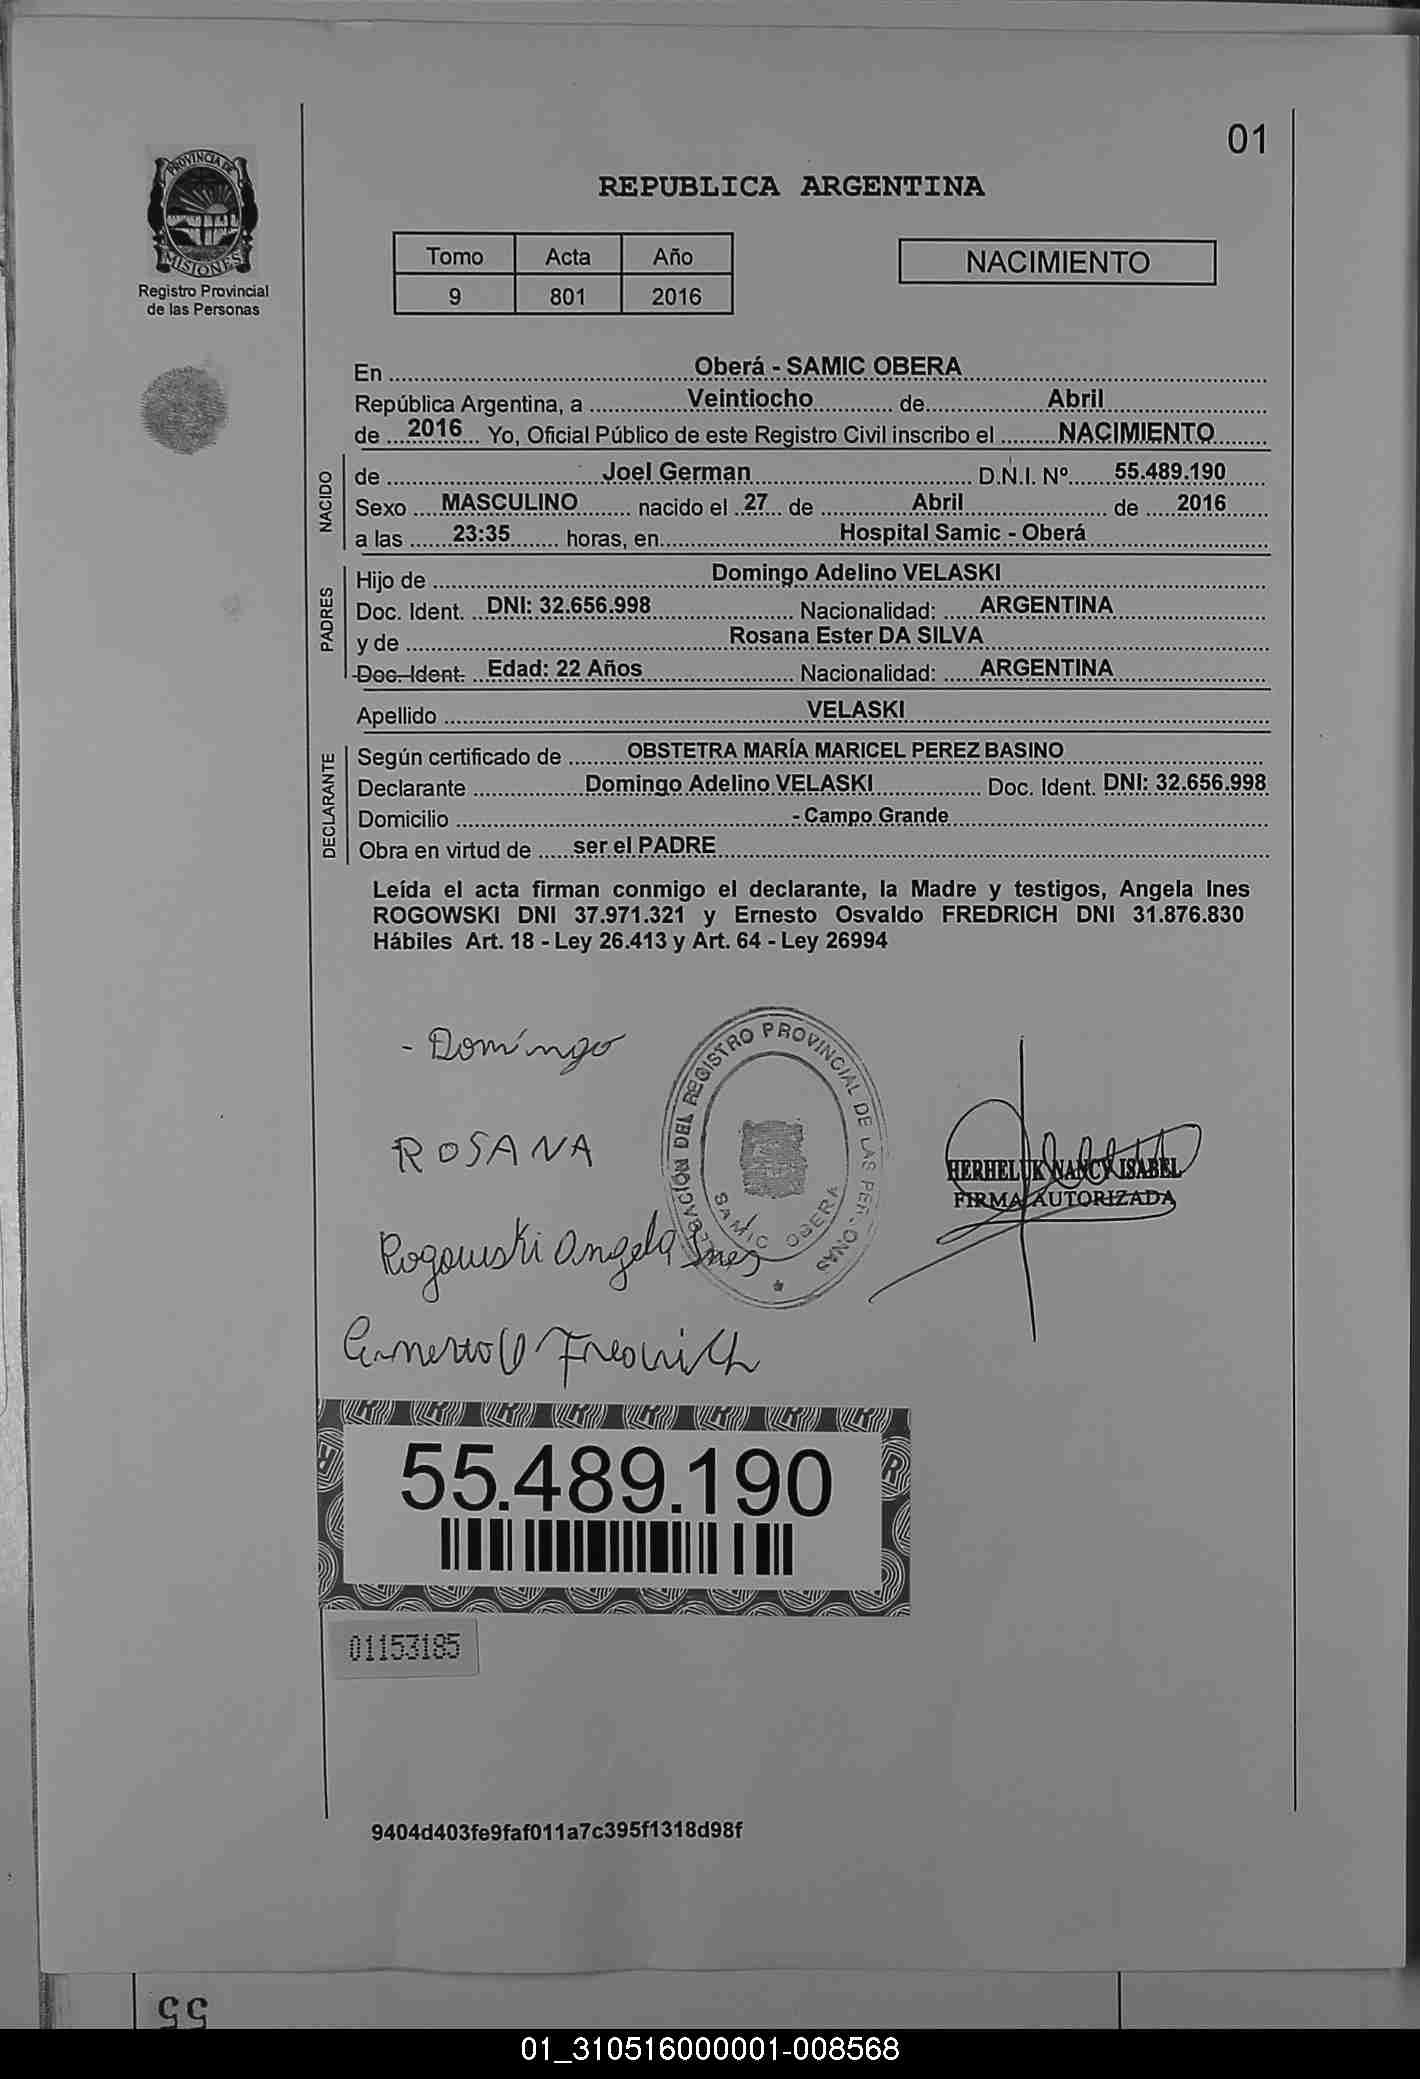 01
PROVINCIA DE
MISIONES
Registro Provincial
de las Personas
REPUBLICA ARGENTINA
Tomo Acta Año
9 801 2016
NACIMIENTO
En Oberá - SAMIC OBERA
República Argentina, a Veintiocho de Abril
de 2016 Yo, Oficial Público de este Registro Civil inscribo el NACIMIENTO
NACIDO
de Joel German D.N.I. Nº 55.489.190
Sexo MASCULINO nacido el 27 de Abril de 2016
a las 23:35 horas, en Hospital Samic - Oberá
PADRES
Hijo de Domingo Adelino VELASKI
Doc. Ident. DNI: 32.656.998 Nacionalidad: ARGENTINA
y de Rosana Ester DA SILVA
Doc. Ident. Edad: 22 Años Nacionalidad: ARGENTINA
Apellido VELASKI
DECLARANTE
Según certificado de OBSTETRA MARÍA MARICEL PEREZ BASINO
Declarante Domingo Adelino VELASKI Doc. Ident. DNI: 32.656.998
Domicilio - Campo Grande
Obra en virtud de ser el PADRE
Leída el acta firman conmigo el declarante, la Madre y testigos, Angela Ines
ROGOWSKI DNI 37.971.321 y Ernesto Osvaldo FREDRICH DNI 31.876.830
Hábiles Art. 18 - Ley 26.413 y Art. 64 - Ley 26994
- Domingo
ROSANA
Rogowski Angela Ines
Ernesto O Fredrich
DELEGACIÓN DEL REGISTRO PROVINCIAL DE LAS PERSONAS
SAMIC OBERA
HERHELUK NANCY ISABEL
FIRMA AUTORIZADA
55.489.190
01153185
9404d403fe9faf011a7c395f1318d98f
55
01_310516000001-008568